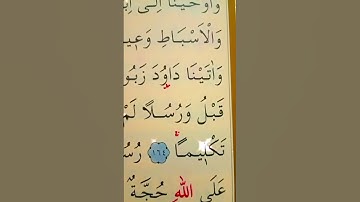 وَاَوْحَيْنَٓا اِلٰٓى
وَالْاَسْبَاطِ
وَاٰتَيْنَا دَاوُ۫دَ
قَبْلُ وَرُسُلًا لَمْ
تَكْل۪يمًاۚ ﴿١٦٤﴾
عَلَى اللّٰهِ حُجَّةٌ